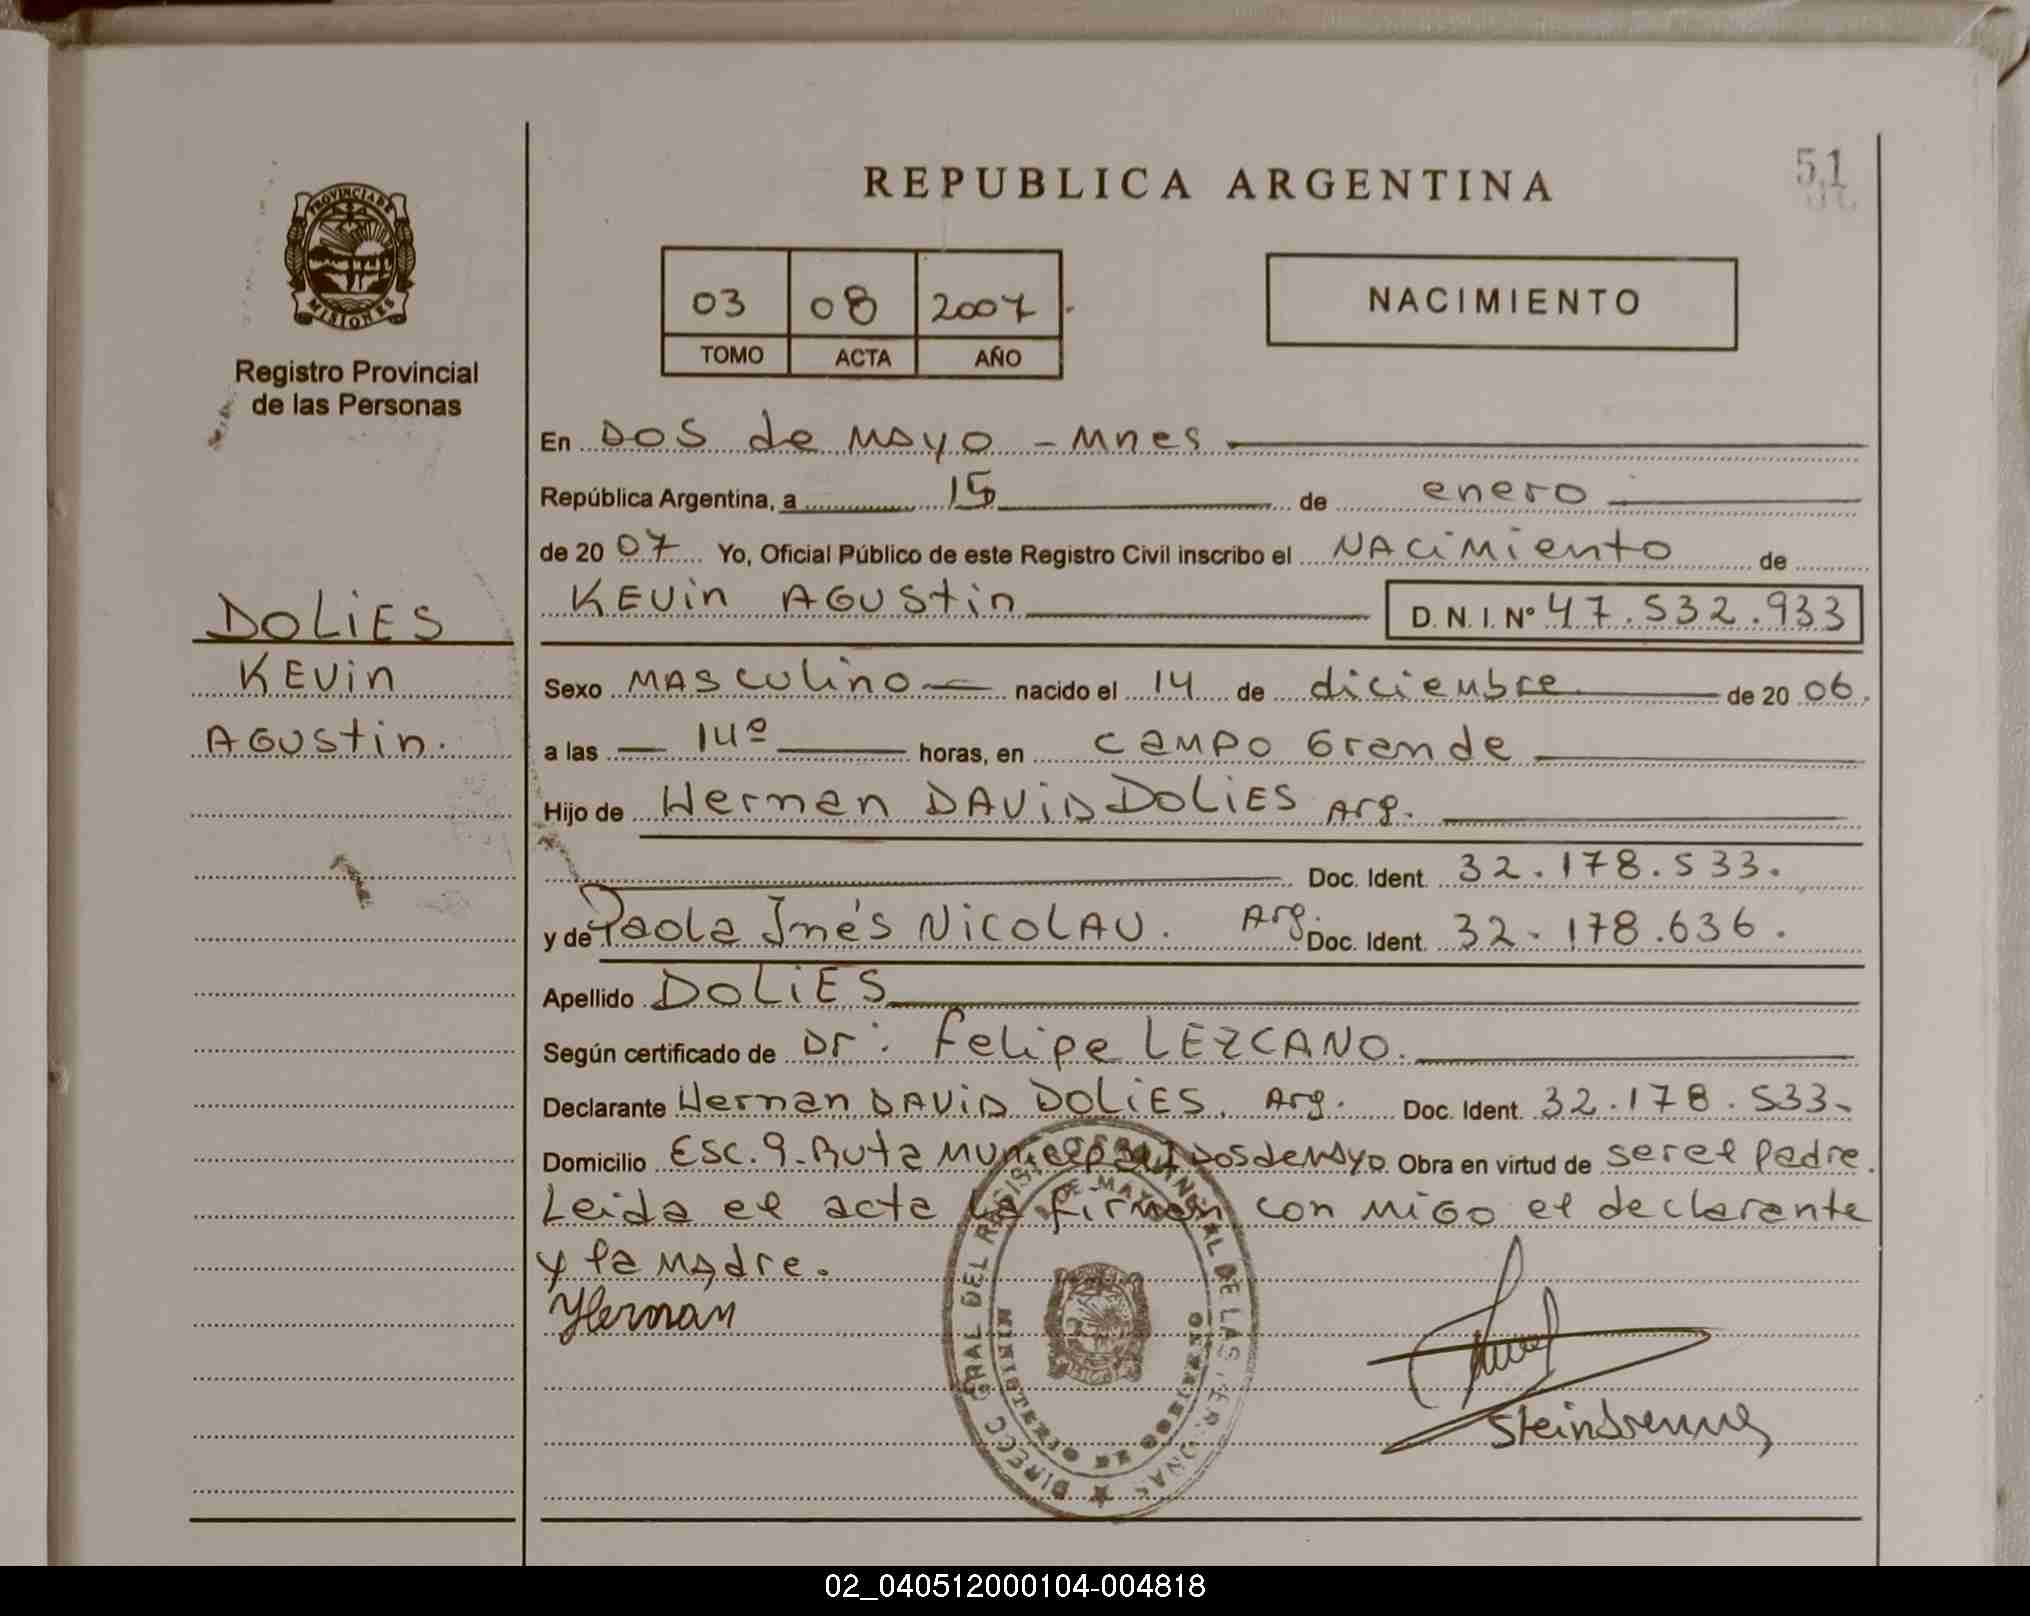 REPUBLICA ARGENTINA
51
PROVINCIA DE
MISIONES
Registro Provincial
de las Personas
03 08 2007
TOMO ACTA AÑO
NACIMIENTO
En Dos de Mayo - Mnes
República Argentina, a 15 de enero
de 2007 Yo, Oficial Público de este Registro Civil inscribo el NACimiento de
KEVin AGUStin D. N. I. Nº 47.532.933
DOLiES
KEVin
AGUStin.
Sexo MASculino nacido el 14 de diciembre de 2006.
a las 14º horas, en Campo Grande
Hijo de Hernan DAViD DOLiES Arg.
Doc. Ident. 32.178.533.
y de Paola Inés NiCOLAU. Arg. Doc. Ident. 32.178.636.
Apellido DOLiES
Según certificado de Dr. Felipe LEZCANO.
Declarante Hernan DAViD DOLiES. Arg. Doc. Ident. 32.178.533.
Domicilio Esc. 9. Ruta Municipal Dos de Mayo Obra en virtud de ser el padre.
Leida el acta la firman con migo el declarante
y la madre.
Hernan
DIRECC GRAL DEL REGIST PROVINCIAL DE LAS PERSONAS
DE MAYO
MINISTERIO DE GOBIERNO
02_040512000104-004818